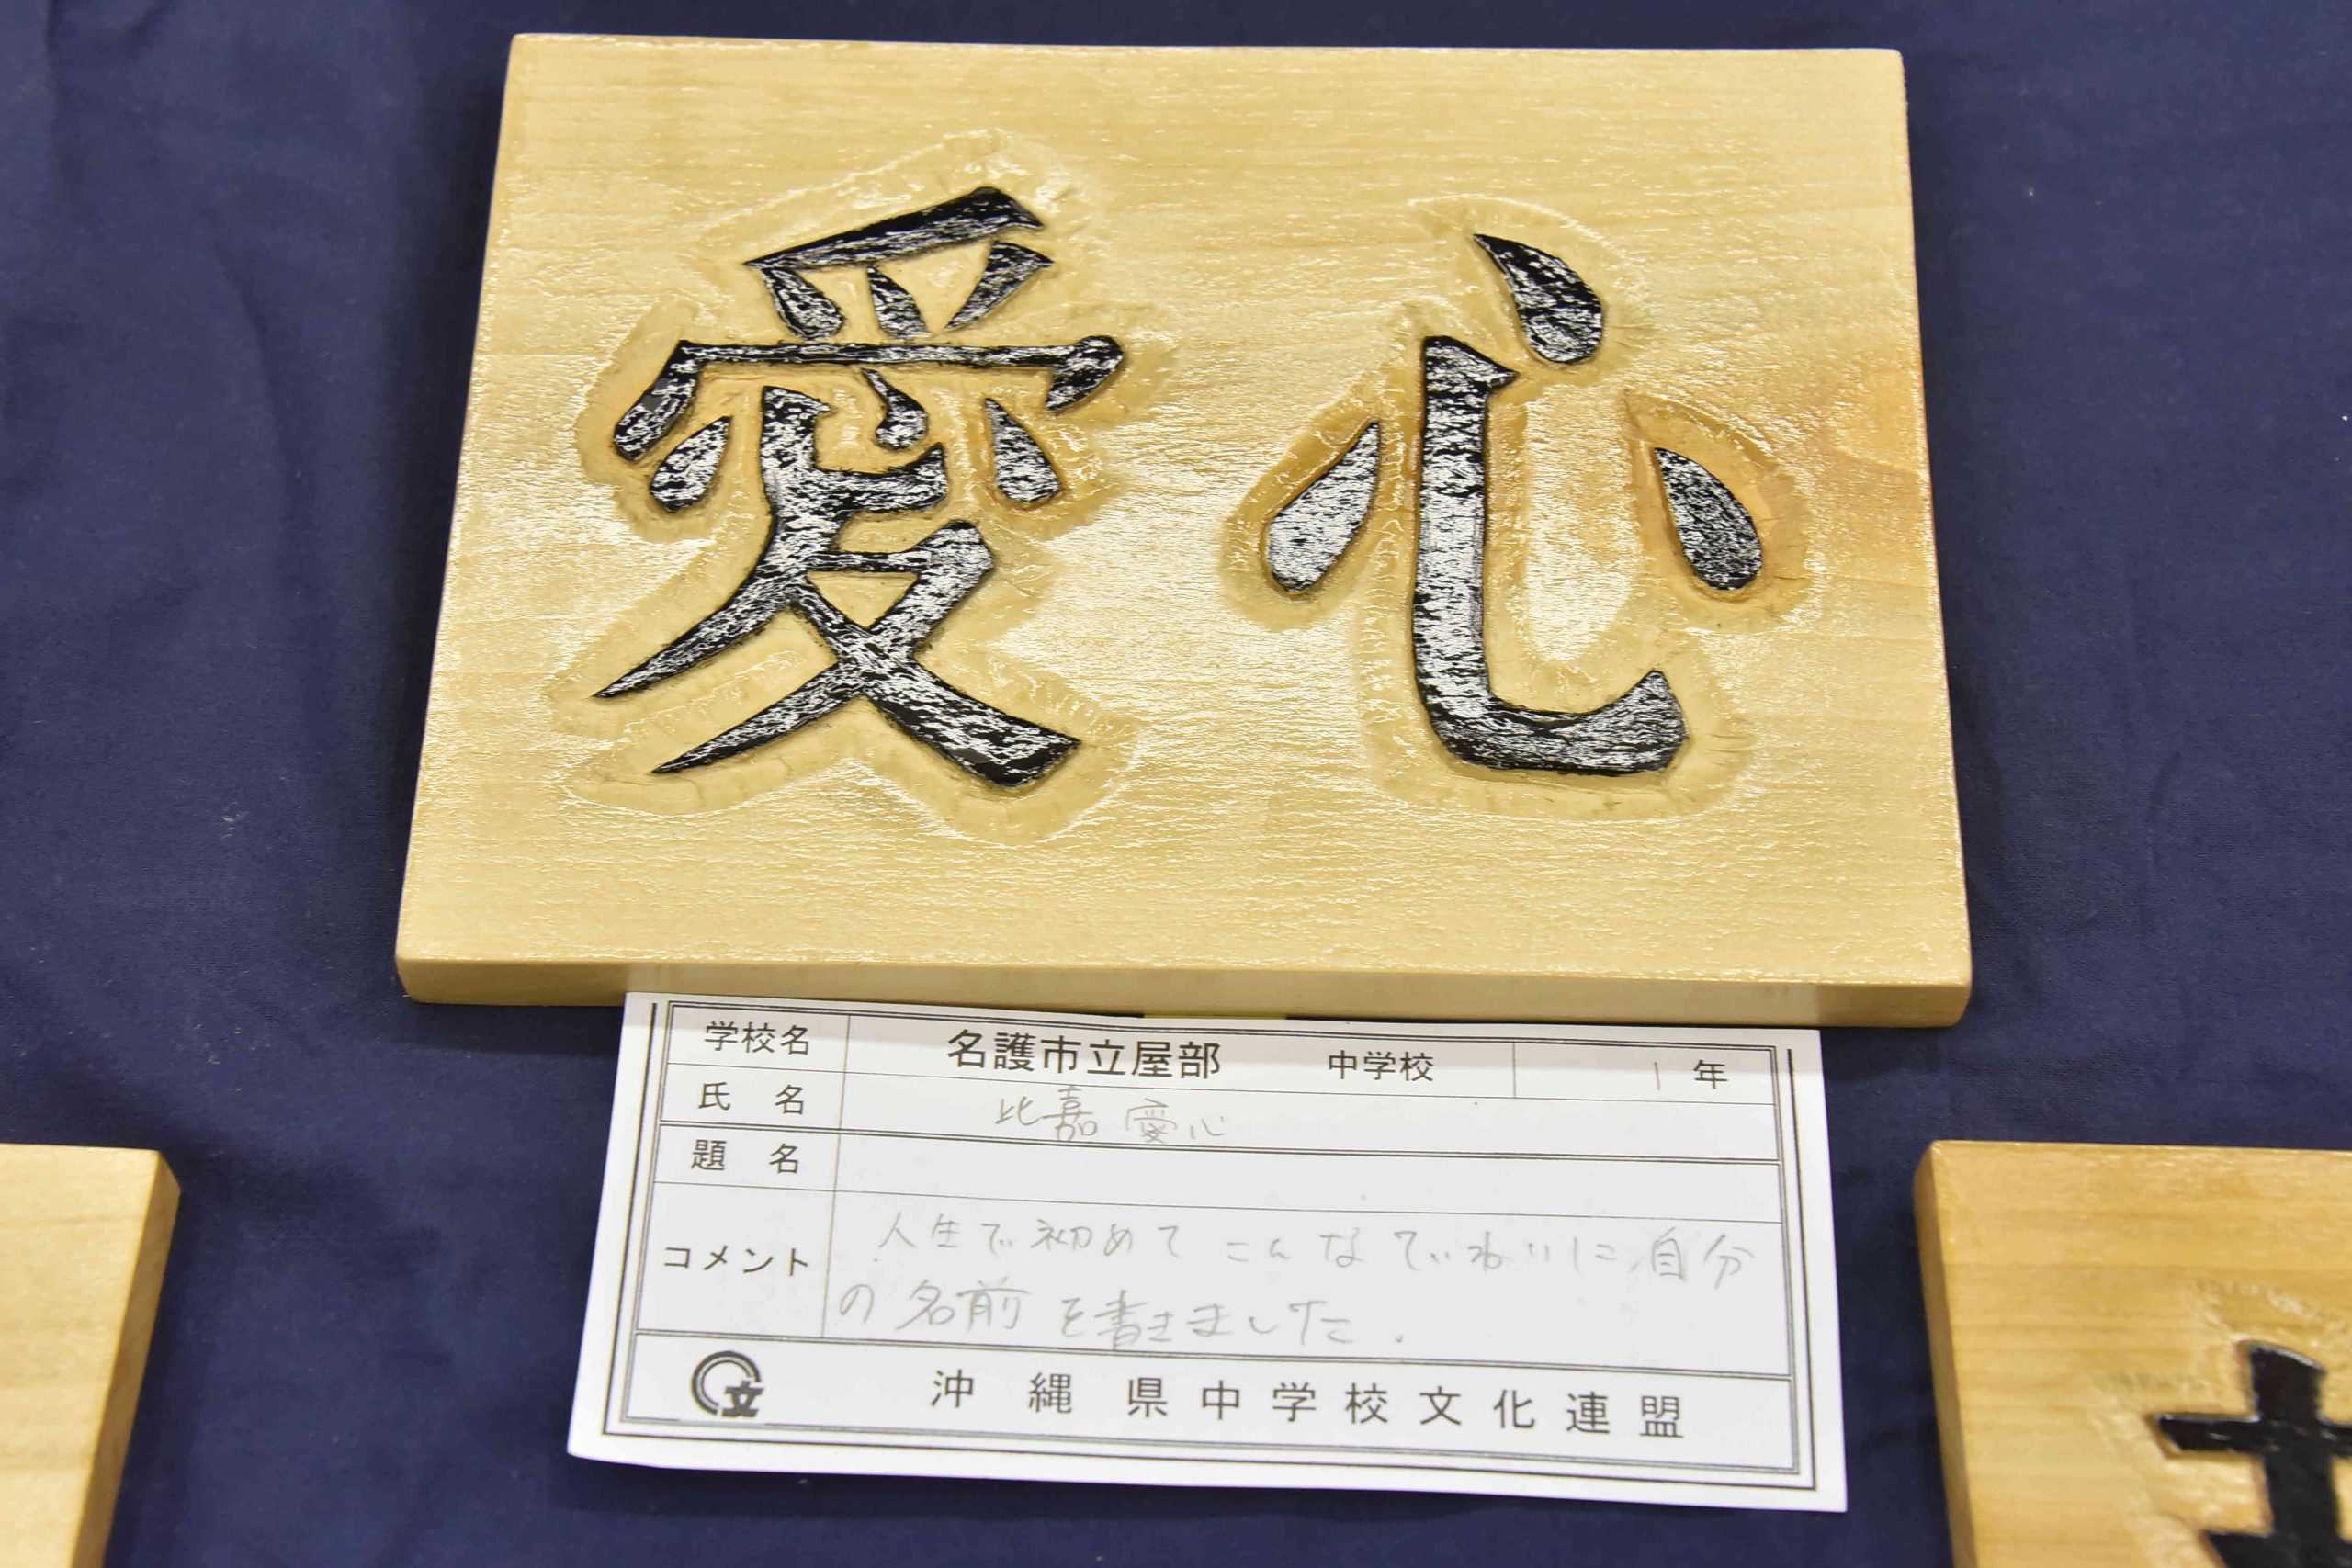 愛心
学校名 名護市立屋部 中学校 1年
氏名 比嘉 愛心
題名
コメント 人生で初めてこんなていねいに自分
の名前を書きました.
立
沖縄県中学校文化連盟